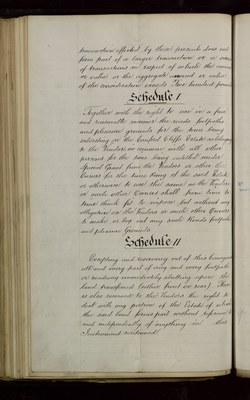 transaction effected by these presents does not
form part of a larger transaction or a series
of transactions in respect of which the amount
or value or the aggregate amount or value
of the consideration exceeds Five hundred pounds
Schedule I
Together with the right to use in a fair
and reasonable manner the roads footpaths
and pleasure grounds for the time being
subsisting on the Cliffs Estate belonging
to the Vendors in common with all other
persons for the time being entitled under
Grant from the Vendors or other the
Owners for the time being of the said Estate
or otherwise to use the same as the Vendors
or such other Owners shall from time to
time think fit to impose but without any
obligation on the Vendors or such other Owners
to make or keep out any such Roads footpaths
and pleasure Grounds
Schedule II
Excepting and reserving out of this Conveyance
all and every part of any and every footpath
or roadway immediately abutting upon the
land transferred (either front or rear) There
is also reserved to the Vendors the right to
deal with any portion of the Estate of which
the said land forms part without reference to
and independently of anything in this
Instrument contained